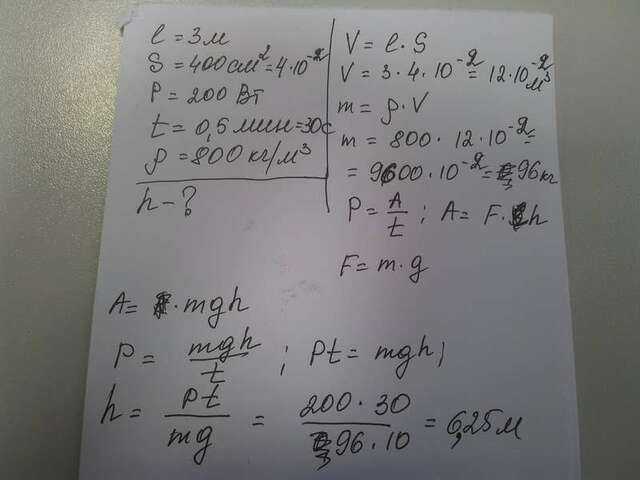 l = 3м
S = 400 см² = 4·10⁻²
P = 200 Вт
t = 0,5 мин = 30с
ρ = 800 кг/м³
h - ?
V = l · S
V = 3 · 4 · 10⁻² = 12·10⁻² м³
m = ρ · V
m = 800 · 12 · 10⁻² =
= 9600 · 10⁻² = 96 кг
P = A/t ; A = F · h
F = m · g
A = · mgh
P = mgh/t ; Pt = mgh ;
h = Pt/mg = 200 · 30/96 · 10 = 6,25 м